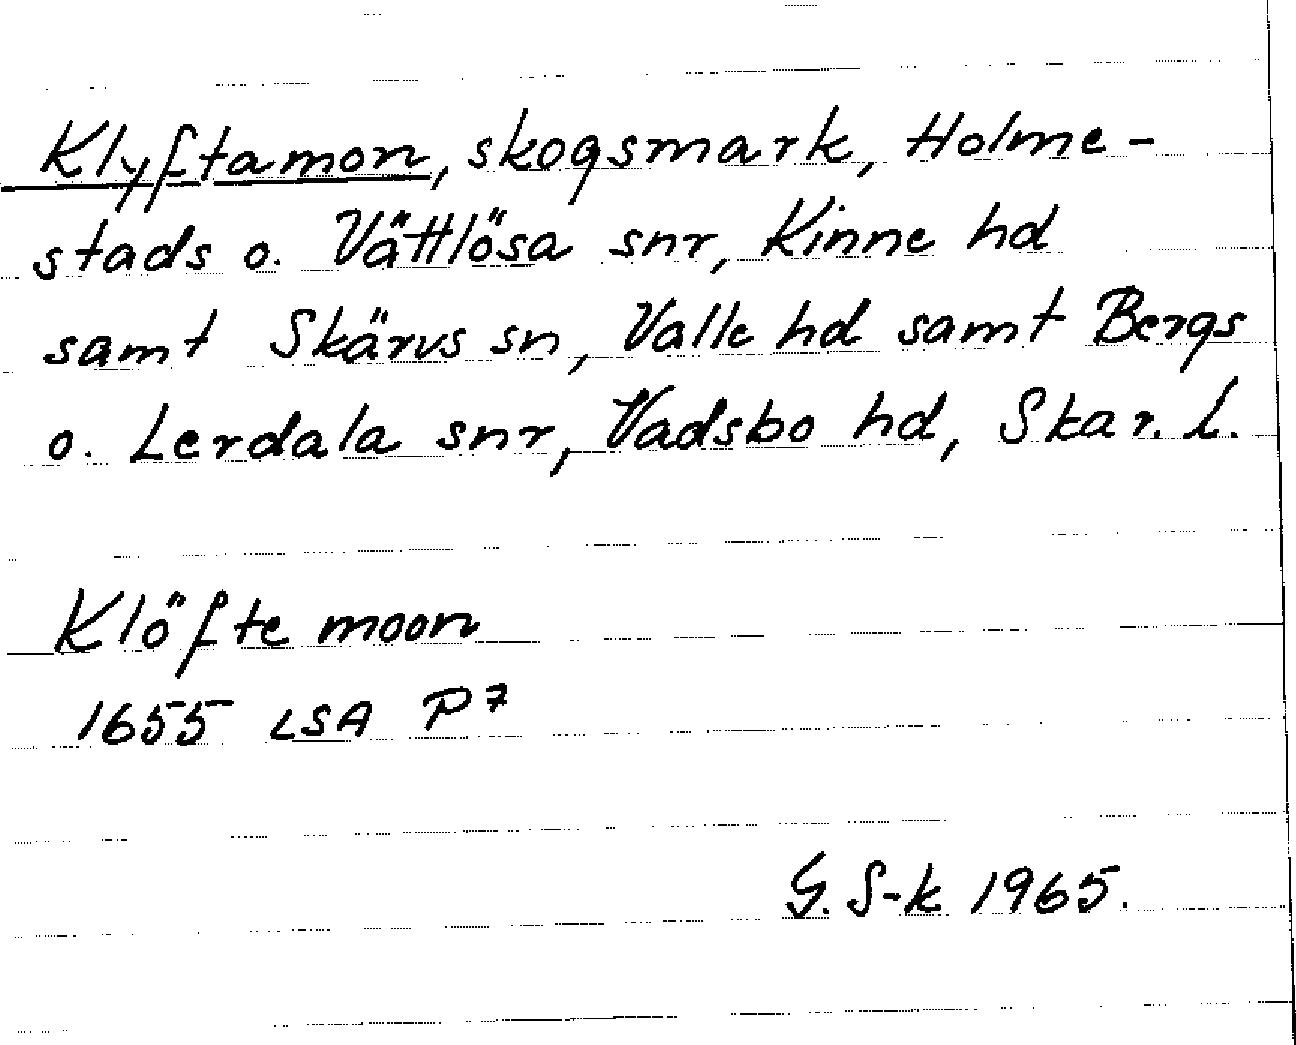 Klyftamon, skogsmark, Holme-
stads o. Vättlösa snr, Kinne hd
samt Skärvs sn, Valle hd samt Bergs
o. Lerdala snr, Vadsbo hd, Skar. L.
Klöfte moon
1655 LSA P7
G. S-k 1965.